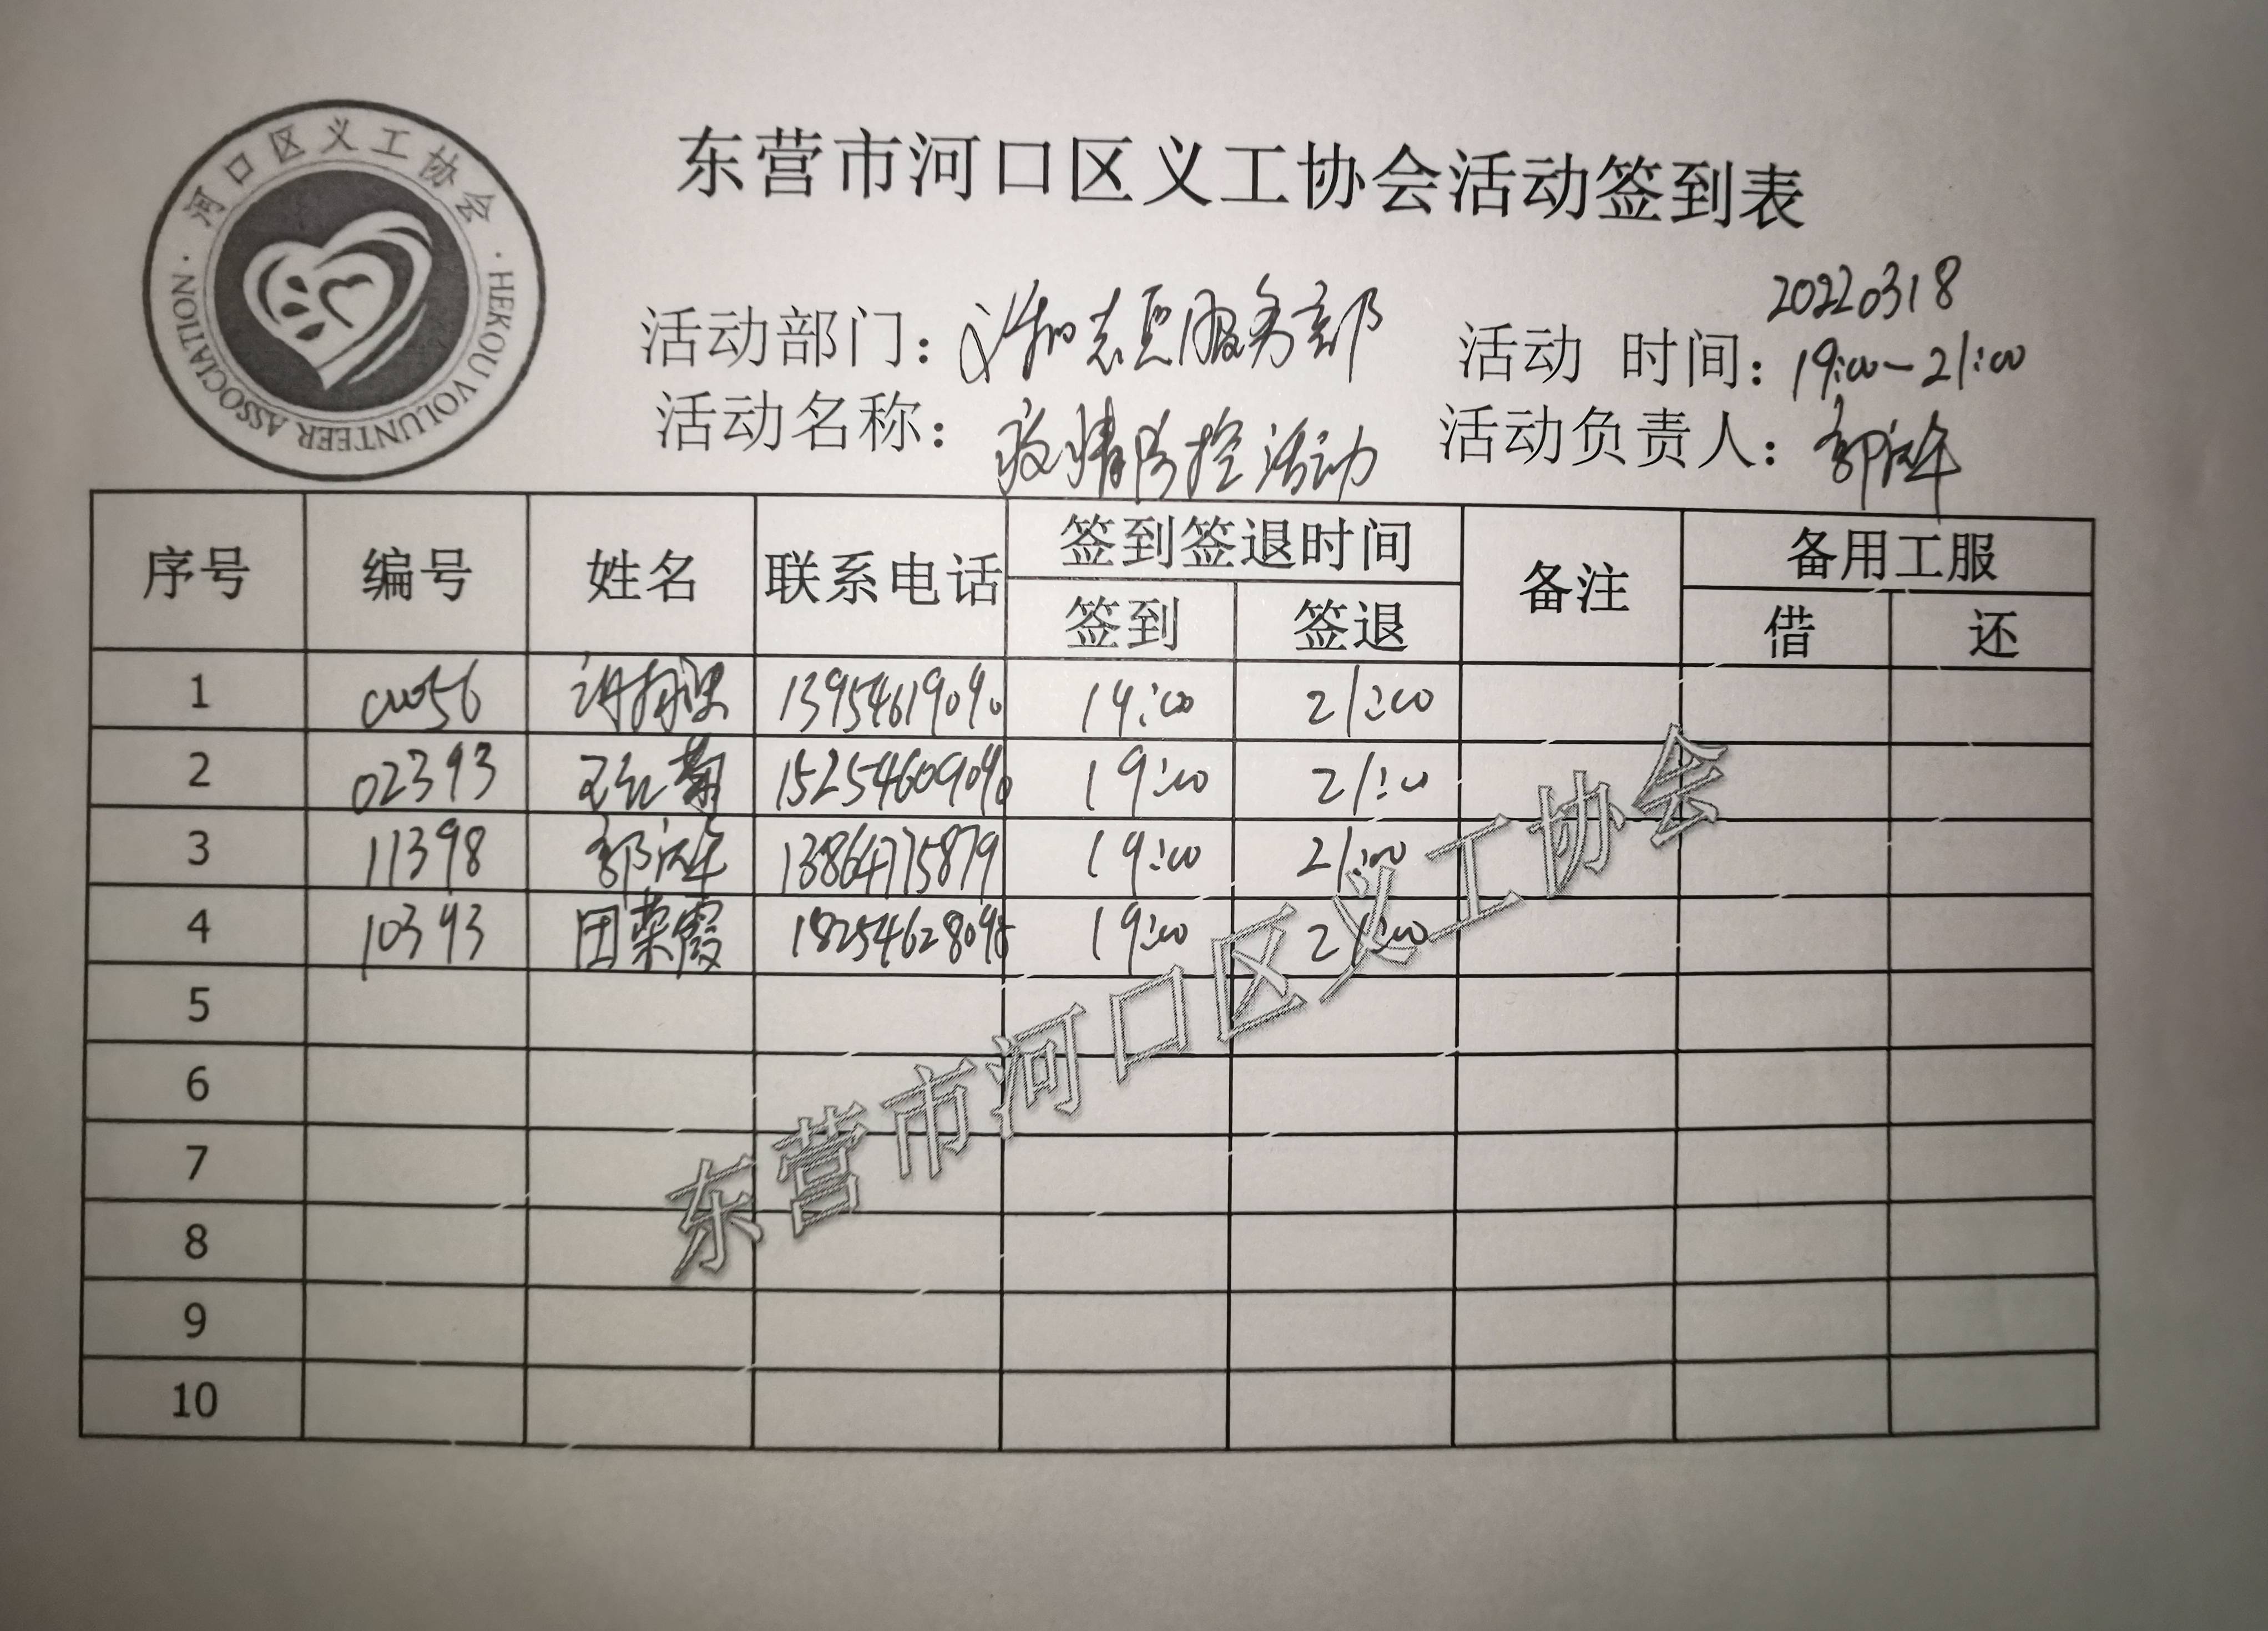 河口区义工协会
HEKOU VOLUNTEER ASSOCIATION
东营市河口区义工协会活动签到表
活动部门：义和志愿服务部
活动 时间：20220318 19:00-21:00
活动名称：疫情防控活动
活动负责人：郭
序号 编号 姓名 联系电话 签到签退时间 备注 备用工服
签到 签退 借 还
1 00056 13954619090 19:00 21:00
2 02393 王红菊 15254609090 19:00 21:00
3 11398 郭 13864775879 19:00 21:00
4 10393 田荣霞 18254628095 19:00 21:00
5
6
7
8
9
10
东营市河口区义工协会